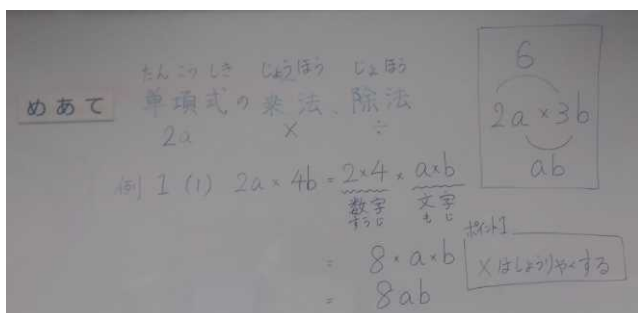 たんこうしき じょうほう じょほう
めあて 単項式の乗法、除法
2a × ÷
例1 (1) 2a × 4b = 2×4 × a×b
数字 文字
すうじ もじ
= 8 × a × b
= 8ab
6
2a × 3b
ab
ポイント1
×はしょうりゃくする